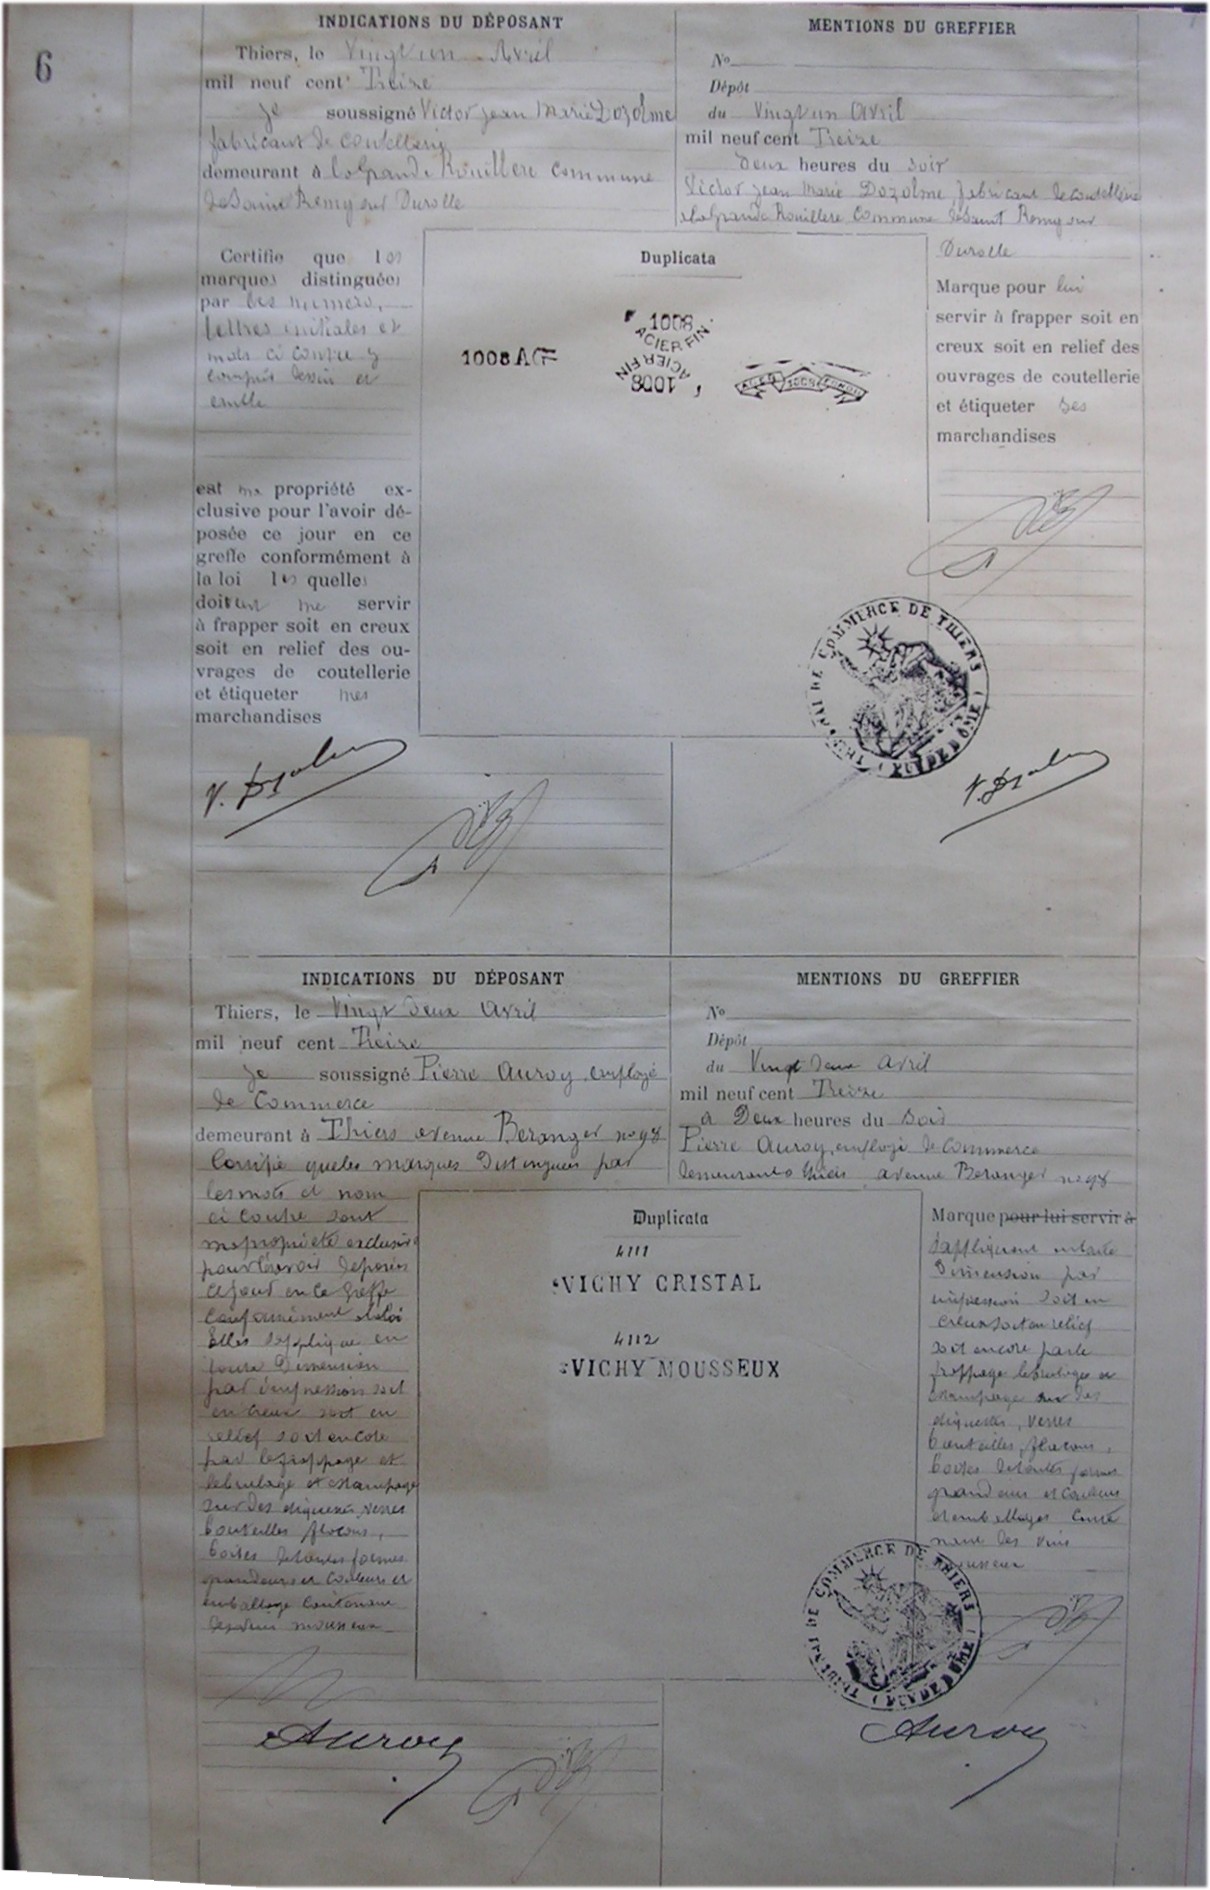 6
INDICATIONS DU DÉPOSANT
Thiers, le Vingt un Avril
mil neuf cent Treize
Je soussigné Victor Jean Marie Dozolme
fabricant de coutellerie
demeurant à la Grande Rouillere Commune
de Saint Remy sur Durolle
Certifie que les
marques distinguées
par les numero,
lettres initiales et
mots ci contre y
compris dessin et
est ma propriété ex-
clusive pour l'avoir dé-
posée ce jour en ce
greffe conformément à
la loi les quelles
doivent me servir
à frapper soit en creux
soit en relief des ou-
vrages de coutellerie
et étiqueter mes
marchandises
V. Dozolme
MENTIONS DU GREFFIER
No
Dépôt
du Vingt un Avril
mil neuf cent Treize
Deux heures du Soir
Victor Jean Marie Dozolme fabricant de coutellerie
a la Grande Rouillere Commune de Saint Remy sur
Durolle
Marque pour lui
servir à frapper soit en
creux soit en relief des
ouvrages de coutellerie
et étiqueter ses
marchandises
Duplicata
1008 AG
1008
ACIER FIN
ACIER FIN
1008
1008
TRIBUNAL DE COMMERCE DE THIERS
(PUY DE DÔME)
V. Dozolme
INDICATIONS DU DÉPOSANT
Thiers, le Vingt deux Avril
mil neuf cent Treize
Je soussigné Pierre Auroy employé
de Commerce
demeurant à Thiers avenue Beranger no 98
Certifie que les marques Distinguées par
les mots et nom
ci contre sont
ma propriété exclusive
pour l'avoir deposées
ce jour en ce Greffe
Conformément a la loi
Elles s'applique en
toute Dimension
par impression soit
en creux soit en
relief soit encore
par le frappage et
le brulage et estampage
sur des etiquettes verres
bouteilles flacons,
boites de toutes formes
grandeurs et couleurs et
emballage contenant
des vins mousseux
Auroy
MENTIONS DU GREFFIER
No
Dépôt
du Vingt deux Avril
mil neuf cent Treize
à Deux heures du Soir
Pierre Auroy, employé de Commerce
demeurant a Thiers avenue Beranger no 98
Marque pour lui servir à
s'appliquant en toute
Dimension par
impression soit en
creux soit en relief
soit encore par le
frappage le brulage et
estampage sur des
etiquettes, verres
bouteilles, flacons,
boites de toutes formes
grandeurs et couleurs
et emballages conte
nant des vins
mousseux
Duplicata
4111
VICHY CRISTAL
4112
VICHY MOUSSEUX
TRIBUNAL DE COMMERCE DE THIERS
(PUY DE DÔME)
Auroy